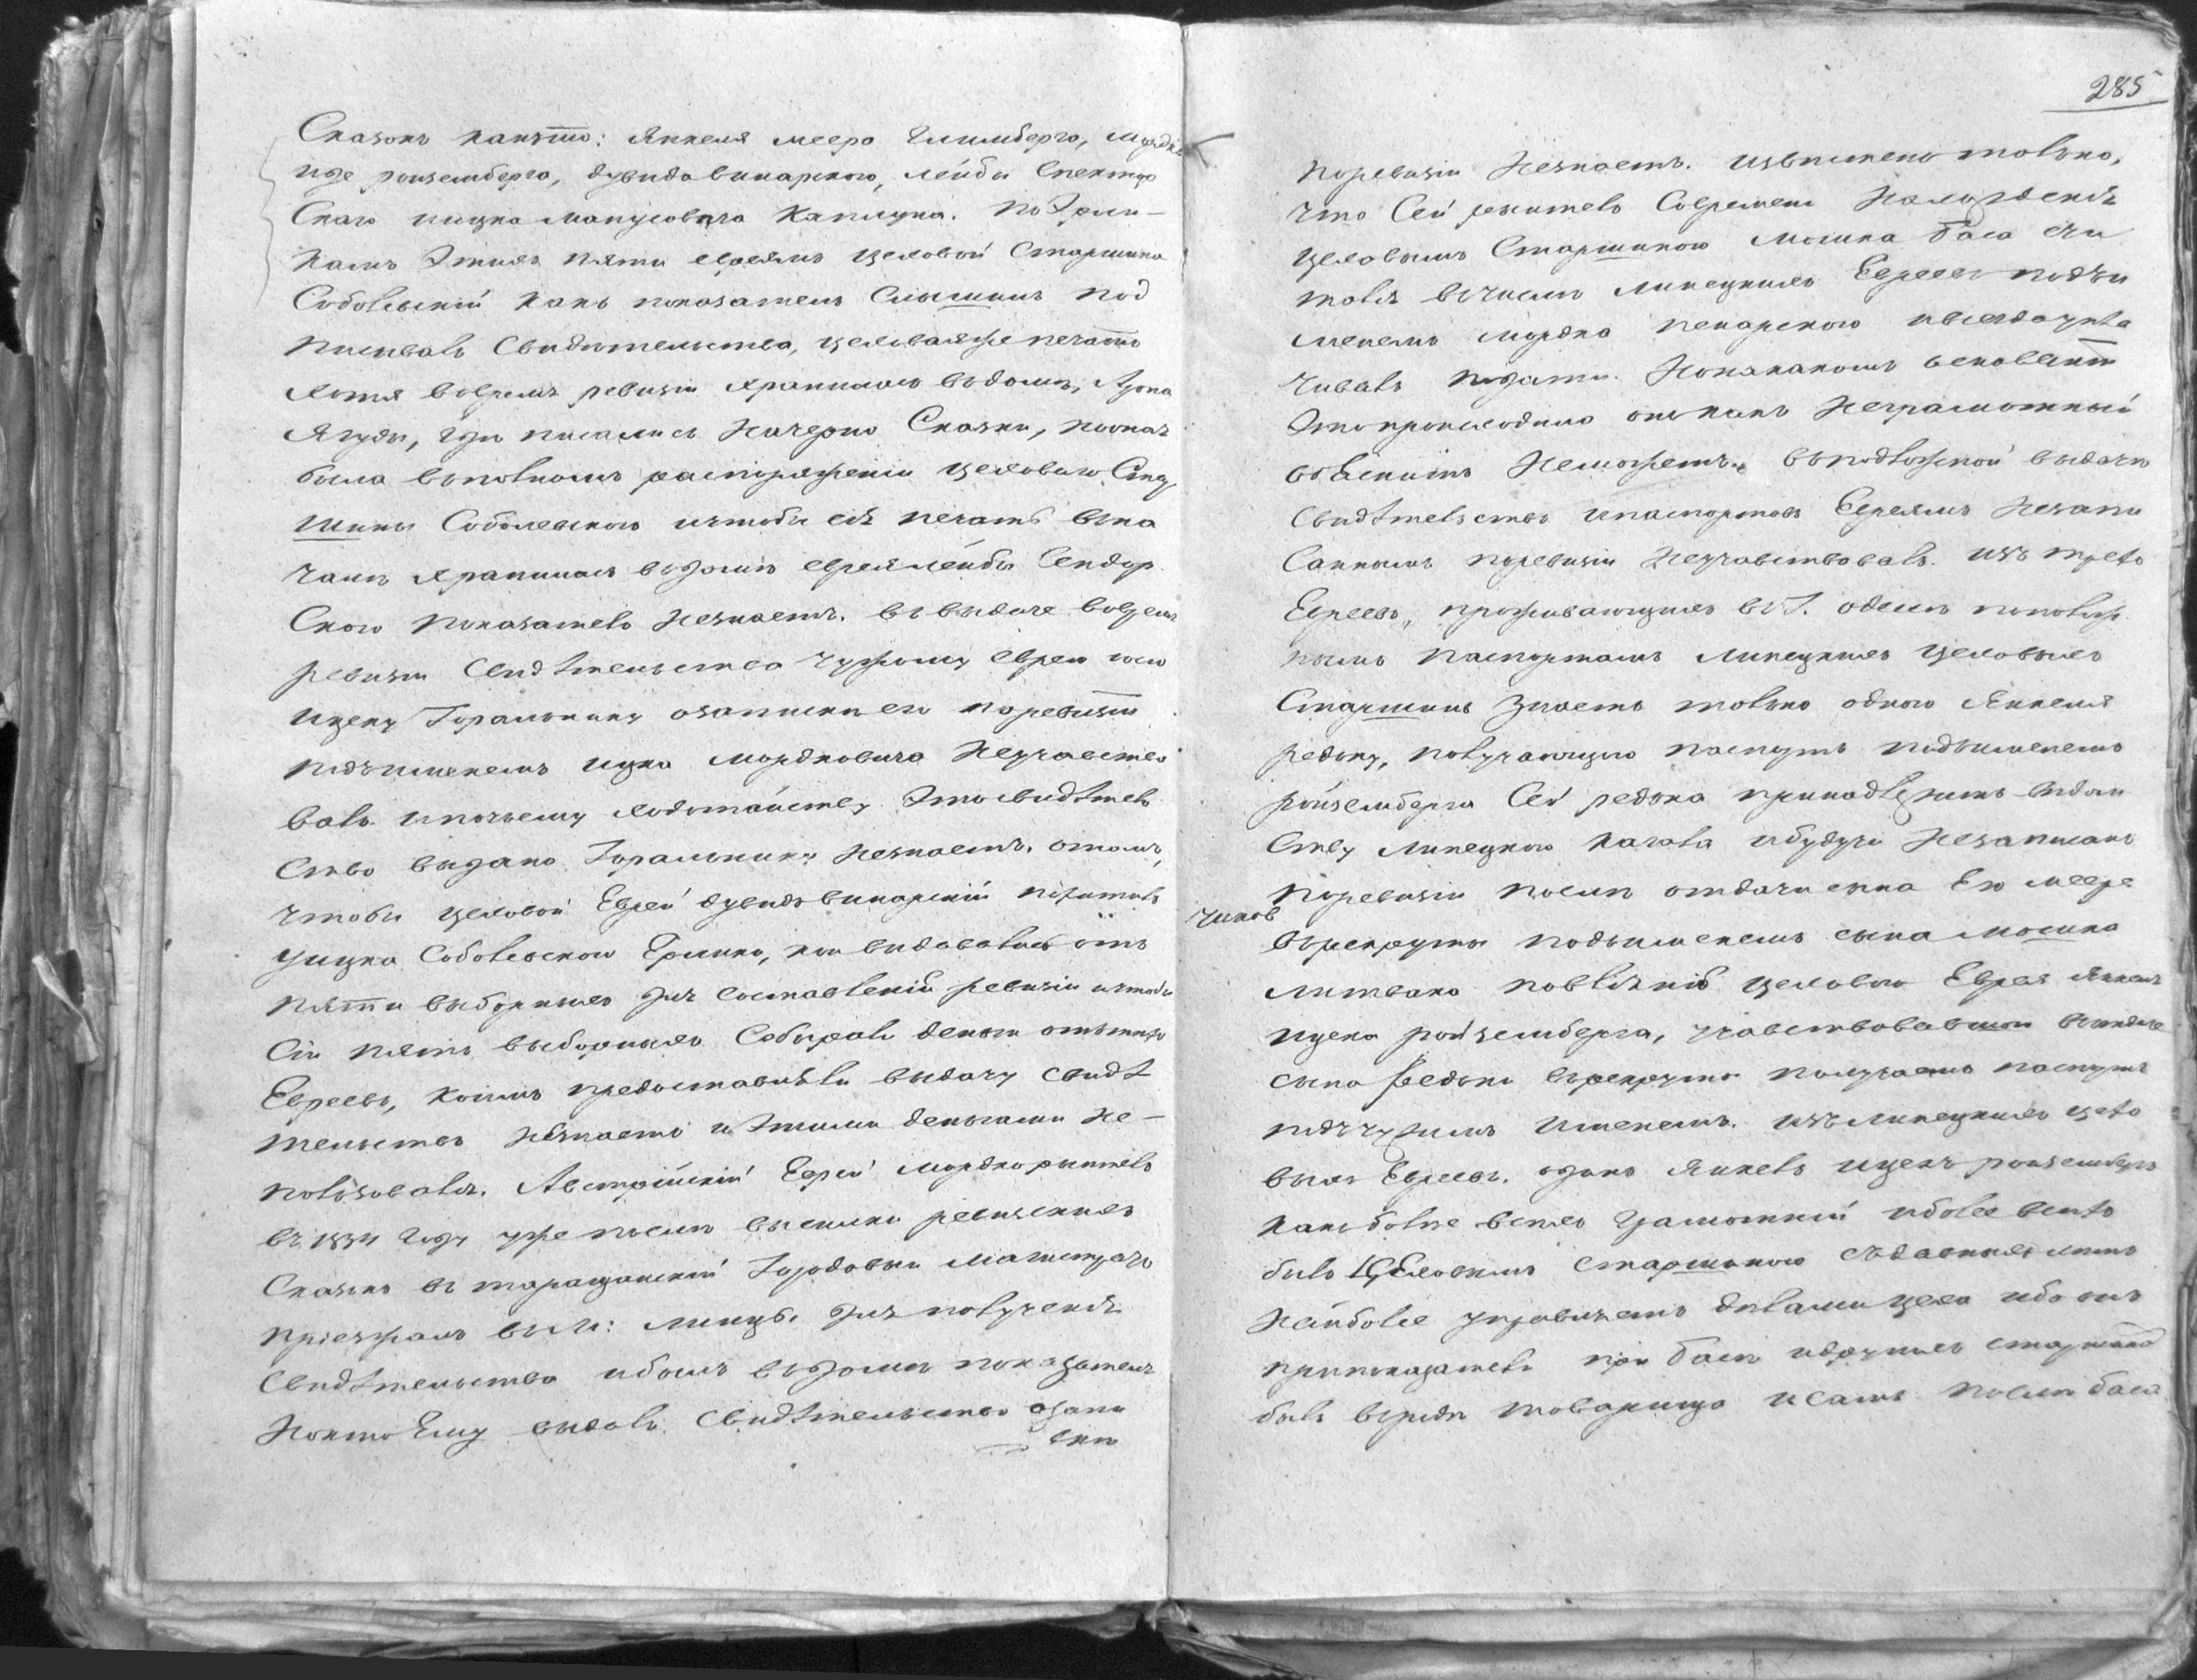 Сказокъ какъто: Янкеля меера Глимберга, мордка
иде роиземберга, дувида винарского, лейбы спектор
Скаго ицка манусовича Каплуна. По
камъ этихъ пяти евреямъ цеховой Старшина
Соболевский какъ показатель Слышилъ под
писивалъ Свидѣтельства, цеховая же печать
хотя вовремя ревизiи хранилась въ домѣ, Арона
Ягуды, гдѣ писались начерно Сказки, но она
была въ полномъ распоряженiи цехового Стар
шины Соболевского и чтобы сiя печать вна
чалѣ хранилась въ домѣ еврея лейбы Сендер
Ского показатель незнаетъ. въ выдаче вовремя
ревизiи Свидѣтельства чужому еврею
ицеку Горальнику о записки его по ревизiи
подъ именемъ ицка мордковича неучаство
валъ и по чьему ходотайству это свидѣтель
Ство выдано Горальнику незнаетъ. о томъ,
чтобы цеховой Еврей дувидъ винарскiй
у ицка Соболевского Ерлики, кои видавались отъ
пяти выборныхъ для Составленiя ревизiи и чтобы
Сiи пять выборныхъ Собирали деньги отъ тѣхъ
Евреевъ, коимъ предоставили выдачу свидѣ
тельствъ незнаетъ и этими деньгами не-
пользовался. Австрiйскiй Еврей мордко рытель
въ 1834 году уже послѣ высылки ревизскихъ
Сказокъ въ таращанскiй Городовый Магистратъ
прiезжалъ въ м: липецъ. для полученiя
свидѣтельства и былъ въ домѣ показателя
но кто Ему выдалъ Свидѣтельство о запи
скѣ
285
по ревизiи незнаетъ. извѣстно только,
что Сей рытель Современи нахожденiя
цеховымъ Старшиною мошка баса счи
тался въ числѣ липецкихъ Евреевъ подъ и
менемъ мордка пекарского и всегда упла
чивалъ подати. но на какомъ основанiи
это происходило онъ какъ неграмотный
объяснить неможетъ. въ подложной выдачи
Свидѣтельствъ и паспортовъ Евреямъ незапи
Саннымъ по ревизiи неучаствовалъ. изъ
Евреевъ, проживающихъ въ г. одессѣ по
нымъ паспортамъ липецкихъ цеховыхъ
Старшинъ знаетъ только одного Янкеля
редьку, получающего паспортъ подъ именемъ
ройземберга Сей редька принадлежитъ ведом
Ству липецкого Кагала и будучи незаписанъ
по ревизiи послѣ отдачи сына Его меера
въ рекруты подъ именемъ сына мошка
литвака по влiянiю цехового Еврея Янкеля
ицека ройземберга, участвовавшаго въ отдаче
сына редьки въ рекруты получаетъ паспортъ
подъ чужимъ именемъ. изъ липецкихъ цехо
выхъ Евреевъ. одинъ Янкель ицекъ ройзембергъ
какъ более всехъ грамотный и более всего
былъ Цеховымъ Старшиною съ давныхъ лѣтъ
наиболее управляетъ дѣлами цеха ибо онъ
при показателѣ при басѣ и другихъ старшинахъ
былъ въ родѣ товарища и самъ послѣ баса